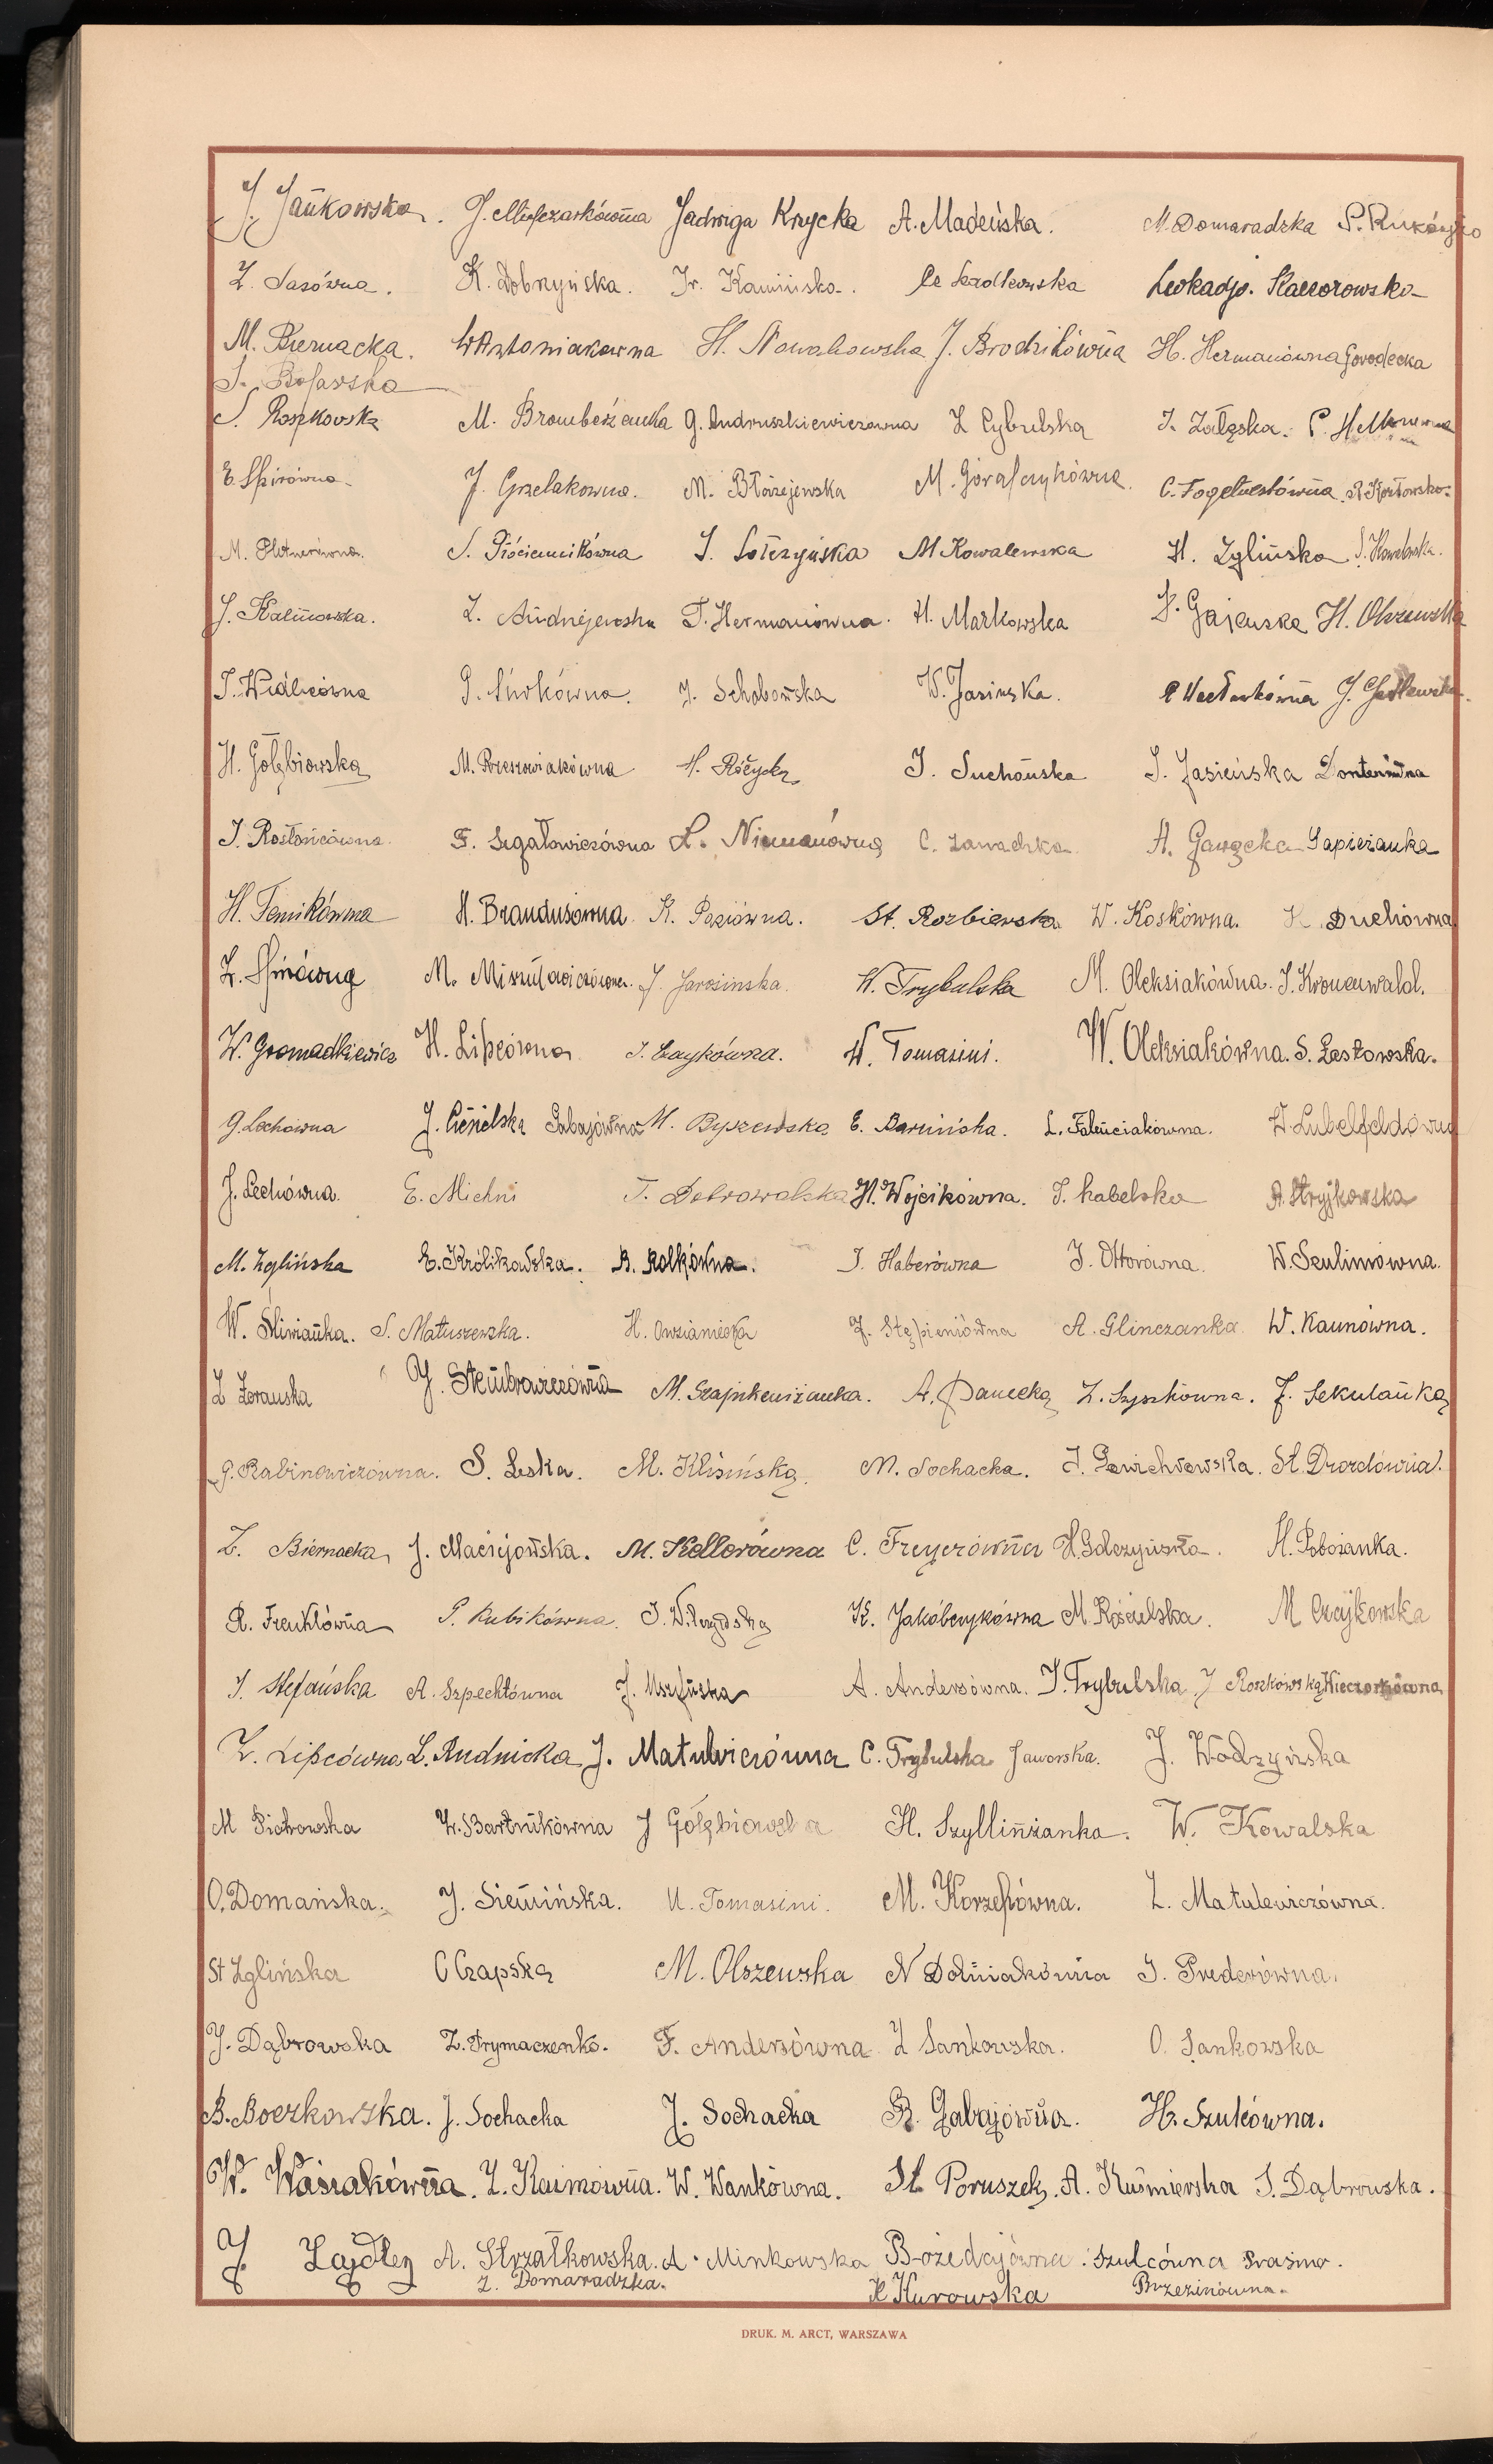 J. Jańkowska. J. Młyńczarkówna Jadwiga Krzycka A. Madeńska. M. Domaradzka
Z. Sasówna. K. Dobrzyńska. Ir. Kamińska. Leokadja Kaczorowska
M. Biernacka. W Antoniakówna H. Nowakowska J. Brodzikówna H. Hermanówna Gorodecka
S. Roszkowska M. Brombeżanka G. Andruszkiewiczówna Z Cybulska J. Załęska.
E. Spirówna J. Grzelakówna. M. Błażejewska M. Górajczykówna. R Kozłowska.
M. Plutnerówna. S. Płóciennikówna M Kowalewska H. Zglińska S. Kowalewska.
J. Kalinowska. Z. Andrzejewska T. Hermanówna. H. Markowska Z. Gajewska H. Olszewska
G. Sirkówna. W. Jasińska.
H. Gołębiowska M. Rzeszowiakówna H. Różycka J. Suchońska J. Jasieńska
F. Segałowiczówna L. Nimanówna C. Zawadzka A. Gawęcka Sapieżanka
H. Temikówna H. Brandusówna K. Paziówna. St. Rozbierska W. Koskówna. K. Duchówna
J. Jarosinska. W. Trybulska M. Oleksiakówna. J. Kronenwald.
W. Gromadkiewicz H. Lipcówna J. Zaykówna. W. Tomasini. W. Oleksiakówna. S. Zesławska.
G. Lechówna J. Ciesielska Gabajówna M. Byszewska E. Barwińska. L. Faleńciakówna. W. Lubelfeldówna
J. Lechówna. E. Michni T. Dobrowolska H. Wójcikówna. J. Kabelska A. Stryjkowska
M. Zglińska E. Królikowska. B. Rolkówna. J. Haberówna J. Ottorówna. W. Szulimówna.
W. Śliwianka. S. Matuszewska. H. Owsianiecka J. Stępieniówna A. Glinczanka W. Kaunówna.
Z Żorawska J. Stembrowiczówna M. Szajnkewiżanka. A. Danecka Z. Szyszkówna. J. Sekulanka
G. Rabinowiczówna. S. Leska. M. Klisińska. M. Sochacka. St. Drozdówna.
Z. Biernacka J. Maciejowska. M. Kellerówna C. Freyerówna H. Golczyńska. H. Pobożanka.
R. Frenklówna P. Kubikówna. K. Jakóbczykówna M. Kościelska. M Czajkowska
J. Stefańska A. Szpechtówna A. Andersówna. J. Trybulska J Roszkowska Wieczorkówna
Z. Lipcówna L. Rudnicka J. Matulwiczówna C. Trybulska Jaworska. J. Wodzyńska
M Piotrowska Z. Bartnikówna J Gołębiowska H. Szyllinżanka. W. Kowalska
O. Domańska. J. Siewińska. U. Tomasini. M. Korzepówna. Z. Matulewiczówna.
St Zglińska C Czapska M. Olszewska N Dolniakówna J. Prederówna.
J. Dąbrowska Z. Prymaczenko. F. Andersówna Z Sankowska. O. Sankowska
B. Boczkowska. J. Sochacka J. Sochacka R. Gabajówna. H. Szulcówna.
W. Wasiakówna. Z. Kaimówna. W. Wankówna. St. Poruszek. A. Kuśmierska J. Dąbrowska.
J. Zajdler A. Strzałkowska. A. Minkowska Bożedajówna. Szulcówna
Z. Domaradzka. K Kurowska Brzezinówna.
DRUK. M. ARCT, WARSZAWA